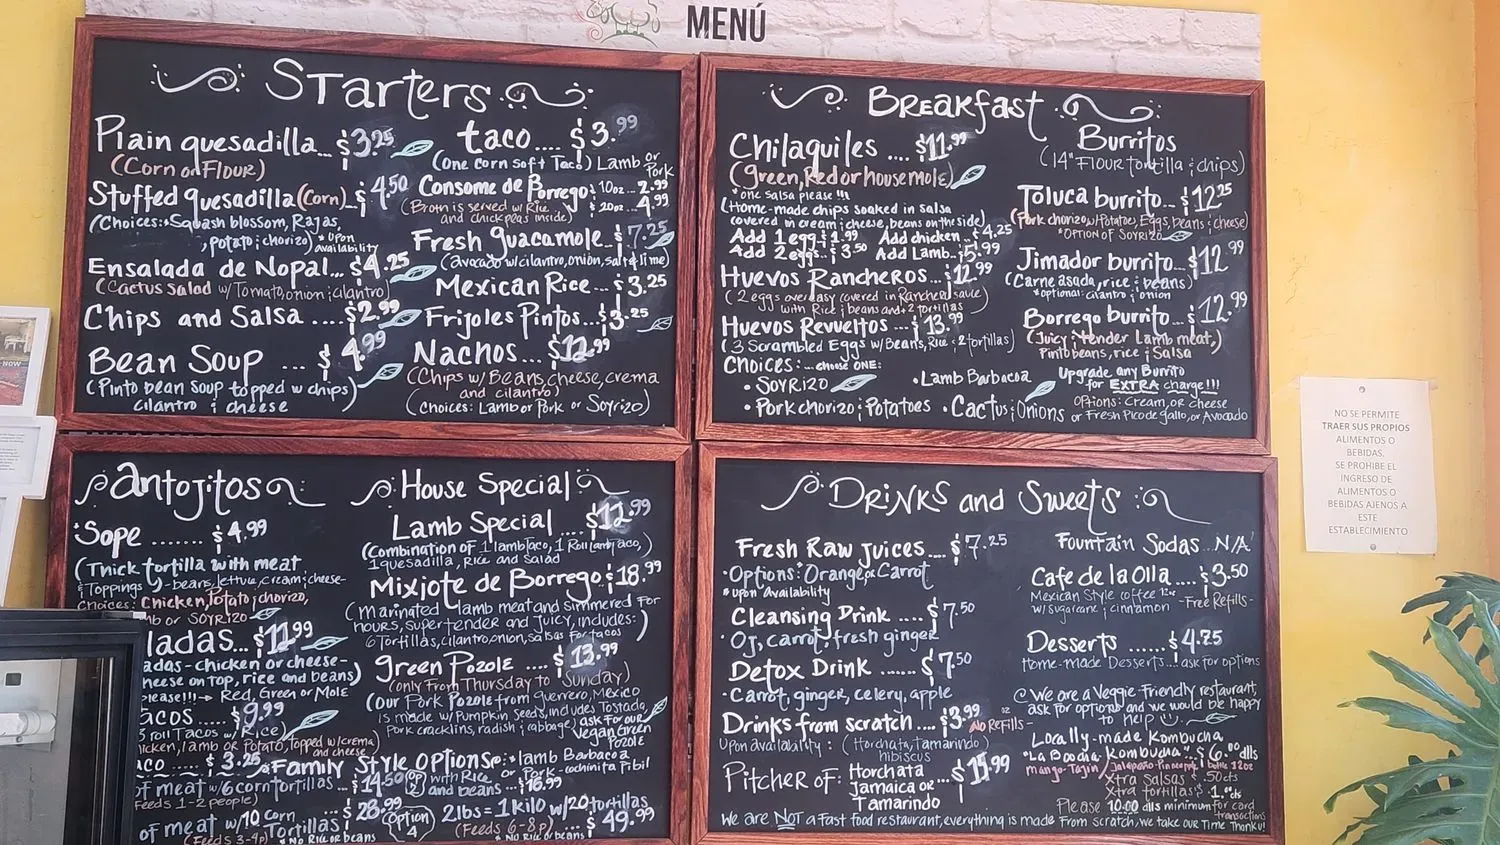 MENÚ
Starters
Plain quesadilla... $3.25
(Corn or Flour)
Stuffed quesadilla (corn).. $4.50
(Choices: Squash blossom, Rajas,
, potato ¡ chorizo) *upon
availability
Ensalada de Nopal... $4.25
(Cactus Salad w/ Tomato, onion ¡ cilantro)
Chips and Salsa .... $2.99
Bean Soup ... $4.99
(Pinto bean soup topped w chips)
cilantro ¡ cheese
taco.... $3.99
(One corn soft Taco!) Lamb or
Pork
Consome de Borrego: 10oz... 2.99
(Broth is served w/ Rice $ 20oz... 4.99
and chickpeas inside)
Fresh guacamole.. $7.25
(avocado w/cilantro, onion, salt & lime)
Mexican Rice... $3.25
Frijoles Pintos...$3.25
Nachos... $12.99
(Chips w/ Beans, cheese, crema
and cilantro)
(Choices: Lamb or Pork or Soyrizo)
Breakfast
Chilaquiles .... $11.99
(green, Red or house mole)
*one salsa please !!!
(Home-made chips soaked in salsa
covered in cream ¡ cheese, beans on the side)
Add 1 egg.. $1.99 Add chicken.. $4.25
Add 2 eggs.. $3.50 Add Lamb.. $5.99
Huevos Rancheros... $12.99
(2 eggs over easy covered in Ranchera sauce
with Rice ¡ beans and + 2 tortillas)
Huevos Revueltos ... $13.99
(3 Scrambled Eggs w/ Beans, Rice ¡ 2 tortillas)
Choices:... choose ONE:
• Soyrizo • Lamb Barbacoa
• Pork chorizo ¡ Potatoes • Cactus ¡ Onions
Burritos
(14" Flour tortilla ¡ chips)
Toluca burrito... $12.25
(Pork chorizo w/Potatoes, Eggs, beans ¡ cheese)
*OPTION OF SOYRIZO
Jimador burrito... $12.99
(Carne asada, rice ¡ beans)
*optional: cilantro ¡ onion
Borrego burrito... $12.99
(Juicy ¡ tender Lamb meat,)
Pinto beans, rice ¡ Salsa
Upgrade any Burrito
for EXTRA charge!!!
Options: Cream, or cheese
or Fresh Pico de gallo, or Avocado
Antojitos
*Sope ....... $4.99
(Thick tortilla with meat
¡ Toppings - beans, lettuce, cream ¡ cheese-
Choices: Chicken, Potato ¡ chorizo,
mb or SOYRIZO
ladas... $11.99
adas - chicken or cheese-
heese on top, rice and beans)
please!!!→ Red, Green or Mole
acos ..... $9.99
3 roll Tacos w/ Rice)
hicken, lamb or Potato, Topped w/crema
and cheese)
aco ... $3.25
House Special
Lamb Special .... $12.99
(Combination of 1 lamb taco, 1 Roll lamb taco,)
1 quesadilla, Rice and Salad
Mixiote de Borrego: $18.99
(marinated lamb meat and simmered for
hours, super tender and juicy, includes:
6 Tortillas, cilantro, onion, salsas for tacos
green Pozole .... $13.99
(only From Thursday to Sunday)
(our Pork Pozole from guerrero, Mexico
is made w/ Pumpkin Seeds, includes Tostada,
Pork cracklins, radish ¡ cabbage) ask For our
Vegan Green
Pozole
Family Style Options: • lamb Barbacoa
or Pork-cochinita Pibil
of meat w/6 corn tortillas ... $14.50 or with Rice and beans ... $16.99
Feeds 1-2 people)
of meat w/10 corn Tortillas ... $28.99
(Feeds 3-4p) * No Rice or beans
Option 4
2lbs = 1 kilo w/20 tortillas
(Feeds 6-8p) ... $49.99
* No Rice or beans
Drinks and Sweets
Fresh Raw juices.... $7.25
• Options: Orange, or Carrot
* upon availability
Cleansing Drink ..... $7.50
• Oj, carrot, fresh ginger
Detox Drink .... $7.50
• Carrot, ginger, celery, apple
Drinks from scratch .... $3.99 No Refills
Upon availability: (Horchata, Tamarindo)
hibiscus
Pitcher of: Horchata
Jamaica or
Tamarindo ... $15.99
Fountain Sodas ..N/A
Cafe de la Olla .... $3.50
Mexican Style coffee 12oz
w/ sugarcane ¡ cinnamon -Free Refills-
Desserts ...... $4.75
Home-made Desserts... ask for options
We are a Veggie-Friendly restaurant,
ask for options and we would be happy
to help
Locally-made Kombucha
"La Boochia Kombucha".. $6.00 dlls
mango-Tajin / Jalapeño-Pineapple bottle 12oz
Xtra Salsas $ .50 cts
Xtra tortillas $ .1.00 cts
Please 10.00 dlls minimum for card
transactions
We are NOT a Fast food restaurant, everything is made from scratch, we take our Time Thank u!
NO SE PERMITE
TRAER SUS PROPIOS
ALIMENTOS O
BEBIDAS.
SE PROHIBE EL
INGRESO DE
ALIMENTOS O
BEBIDAS AJENOS A
ESTE
ESTABLECIMIENTO